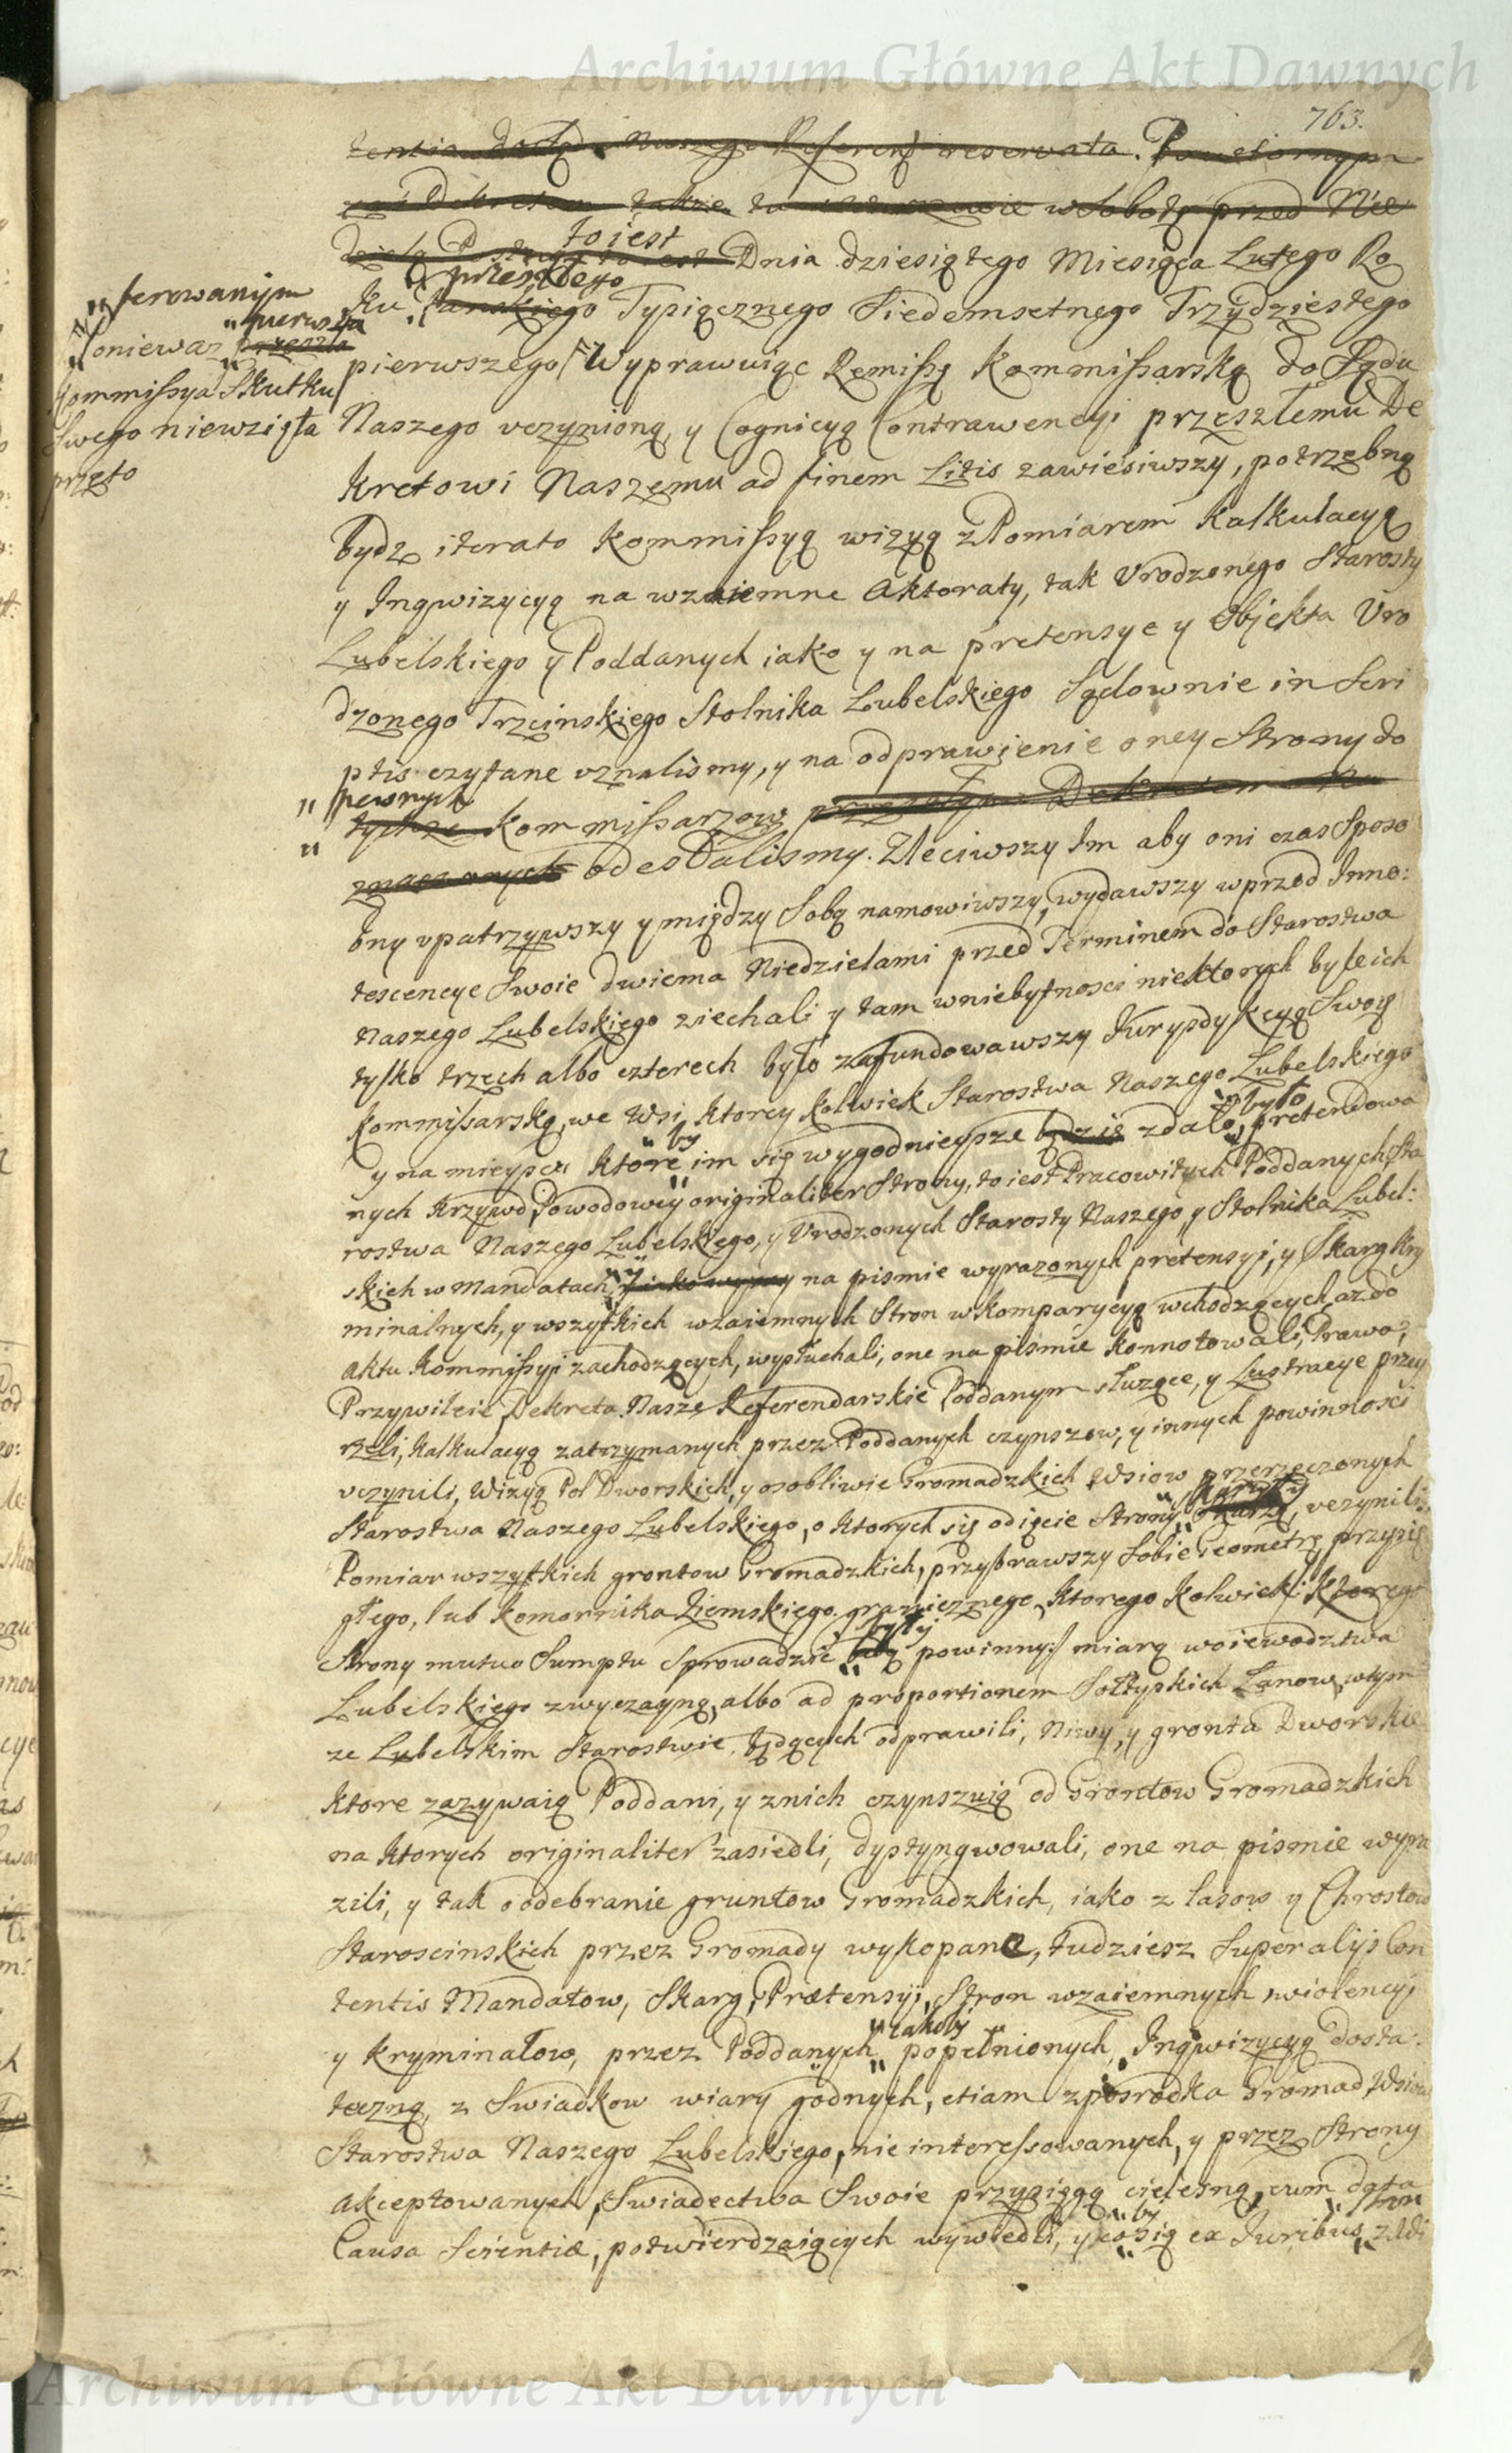 Archiwum Główne Akt Dawnych
763.
tentia Naszego Referen reservata. Powtornym
zas Dekretem także tu w Warszawie w Sobotę przed Nie
to iest
dzielą Dnia dziesiątego Miesiąca Lutego Ro
przeszłego
ku Panskiego Tysiącznego Siedemsetnego Trzydziestego
ferowanym
pierwsza
Poniewaz przeszła
Kommissya Skutku
Swego niewzięła
przeto
pierwszego Wyprawuiąc Remissę Kommissarską do Sądu
Naszego vczynioną, y Cognicyą Contrawencyi przeszłemu De
kretowi Naszemu ad finem Litis zawiesiwszy, potrzebną
bydz iterato Kommissyą wizyą z Pomiarem Kalkulacyą
y Inqwizycyą na wzaiemne Aktoraty, tak Vrodzonego Starosty
Lubelskiego y Poddanych iako y na pretensye y Objekta Vro
dzonego Trzcinskiego Stolnika Lubelskiego Sądownie in Scri
ptis czytane vznalismy, y na odprawienie oney Strony do
pewnych
tychze Kommissarzow przeszłym Dekretem na
znaczonych odesłalismy. Zleciwszy Im aby oni czas Sposo
bny vpatrzywszy y między Sobą namowiwszy, wydawszy wprzod Inno:
tescencye Swoie dwiema Niedzielami przed Terminem do Starostwa
Naszego Lubelskiego ziechali y tam wniebytnosci niektorych byle ich
tylko trzech albo czterech było zafundowawszy Jurysdykcyą Swoią
Kommissarską, we Wsi, ktorey kolwiek Starostwa Naszego Lubelskiego
by
było
y na mieysca które im się wygodnieysze będzie zdało, pretendowa
nych Krzywd, Powodowey originaliter Strony, to iest Pracowitych Poddanych Sta
rostwa Naszego Lubelskiego, y Vrodzonych Starosty Naszego, y Stolnika Lubel:
y
skich w Mandatach, iako wyzey na pismie wyrazonych pretensyi, y Skarg Kry
minalnych, y wszytkich wzaiemnych Stron w komparycyą wchodzących, az do
aktu Kommissyi zachodzących, wysłuchali, one na pismie konnotowali, Prawo,
Przywileie, Dekreta Nasze Referendarskie Poddanym służące, y Lustracye przey
rzeli, Kalkulacyą zatrzymanych przez Poddanych czynszow, y innych powinnosci
vczynili, Wizyą Pol Dworskich, y osobliwie Gromadzkich Wsiow przerzeczonych
Starostwa Naszego Lubelskiego, o ktorych się odięcie Strony skarzą, vczynili,
Pomiar wszytkich grontow Gromadzkich, przybrawszy Sobie Geometrę, przysię
głego, lub Komornika Ziemskiego granicznego, ktorego kolwiek /: ktorego
były
Strony mutuo Sumptu Sprowadzić będą powinny :/ miarą woiewodztwa
Lubelskiego zwyczayną, albo ad proportionem Sołtyskich Lanow, wtym
ze Lubelskim Starostwie, będących odprawili, Niwy, y gronta Dworskie
ktore zazywaią Poddani, y znich czynszuią od Grontow Gromadzkich
na ktorych originaliter zasiedli, dystyngwowali, one na pismie wyra
zili, y tak o odebranie gruntow Gromadzkich, iako z lasow y Chrostow
Staroscinskich przez Gromady wykopane, tudziesz Super alijs Con
tentis Mandatow, Skarg, Prætensyi, Stron wzaiemnych, wiolencyi
iakoby
y kryminałow, przez Poddanych popełnionych, Inqwizycyą dosta:
teczną, z Swiadkow wiary godnych, etiam zposrodka Gromad, Wsiow
Starostwa Naszego Lubelskiego, nie interessowanych, y przez Strony
akceptowanych, Swiadectwa Swoie przysięgą cielesną, cum data
by
Stron
Causa Scientiæ, potwierdzaiących wywiedli, y co się ex Juribus,
Archiwum Główne Akt Dawnych